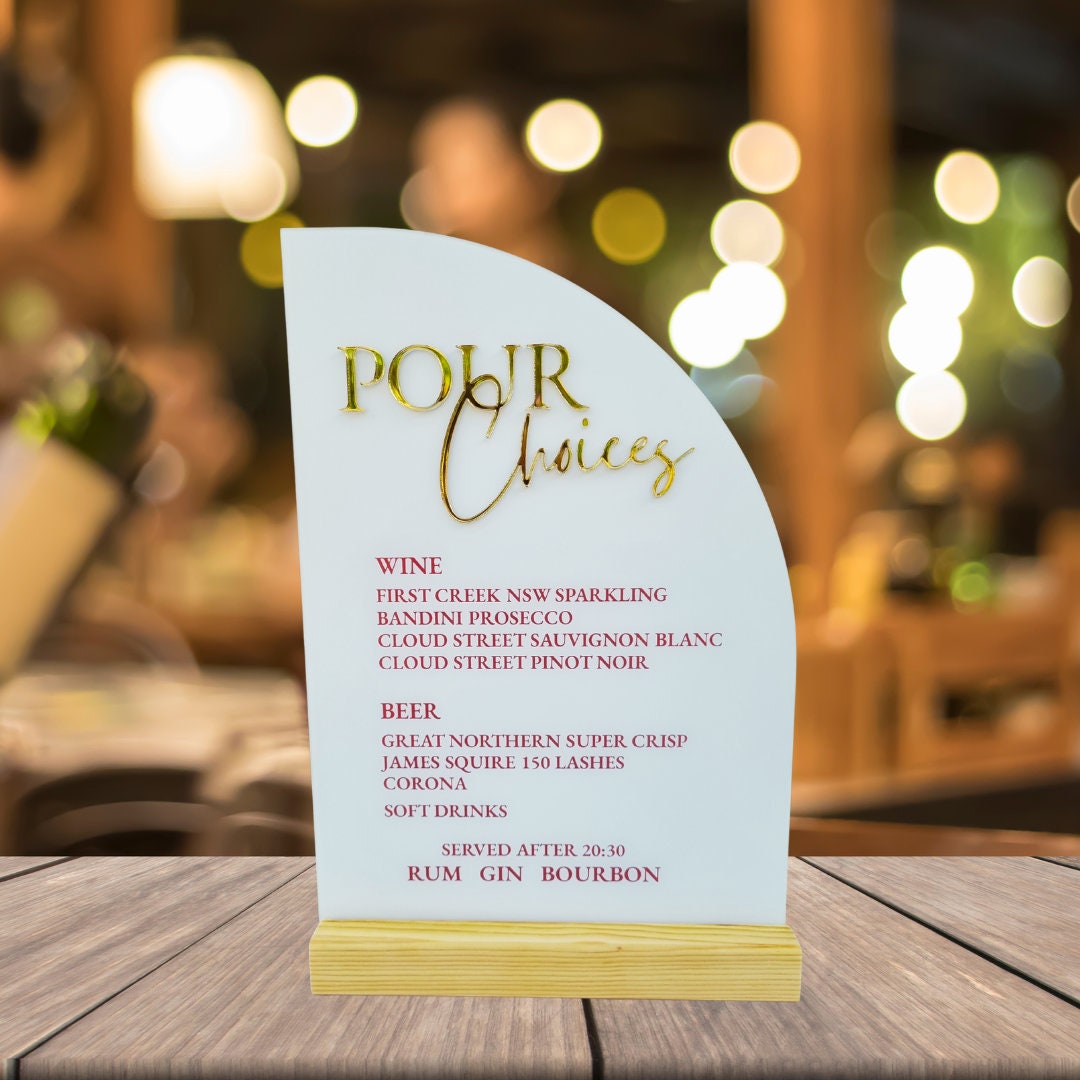 POUR
Choices
WINE
FIRST CREEK NSW SPARKLING
BANDINI PROSECCO
CLOUD STREET SAUVIGNON BLANC
CLOUD STREET PINOT NOIR
BEER
GREAT NORTHERN SUPER CRISP
JAMES SQUIRE 150 LASHES
CORONA
SOFT DRINKS
SERVED AFTER 20:30
RUM GIN BOURBON